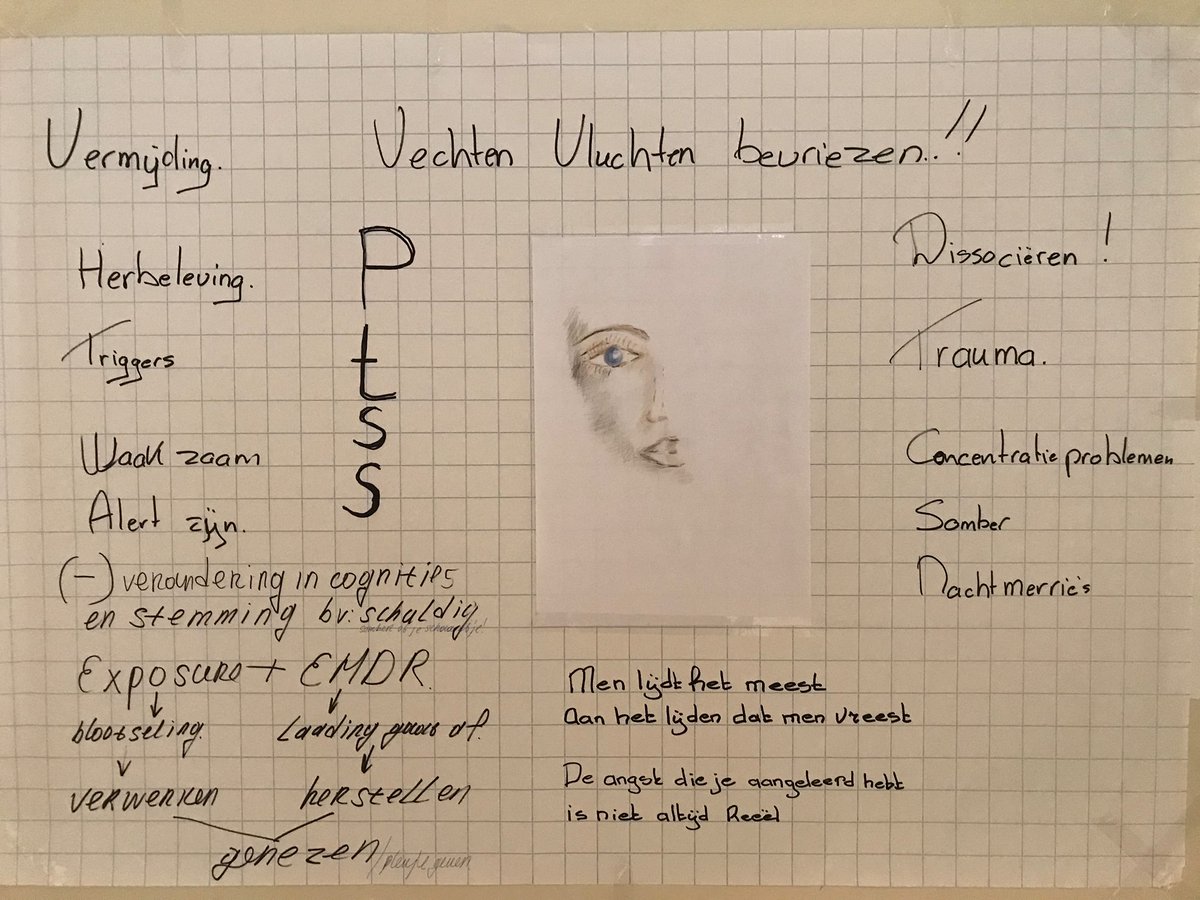 Vermijding.
Vechten Vluchten bevriezen..!!
Herbeleving.
Triggers
Waakzaam
Alert zijn.
(-) verandering in cognities
en stemming bv: schuldig
Exposure + EMDR.
blootseling.
Laading gaat af.
verwerken
herstellen
genezen
Ptss
Dissociëren!
Trauma.
Concentratieproblemen
Somber
Nachtmerrie's
Men lijdt het meest
Aan het lijden dat men vreest
De angst die je aangeleerd hebt
is niet altijd Reeël